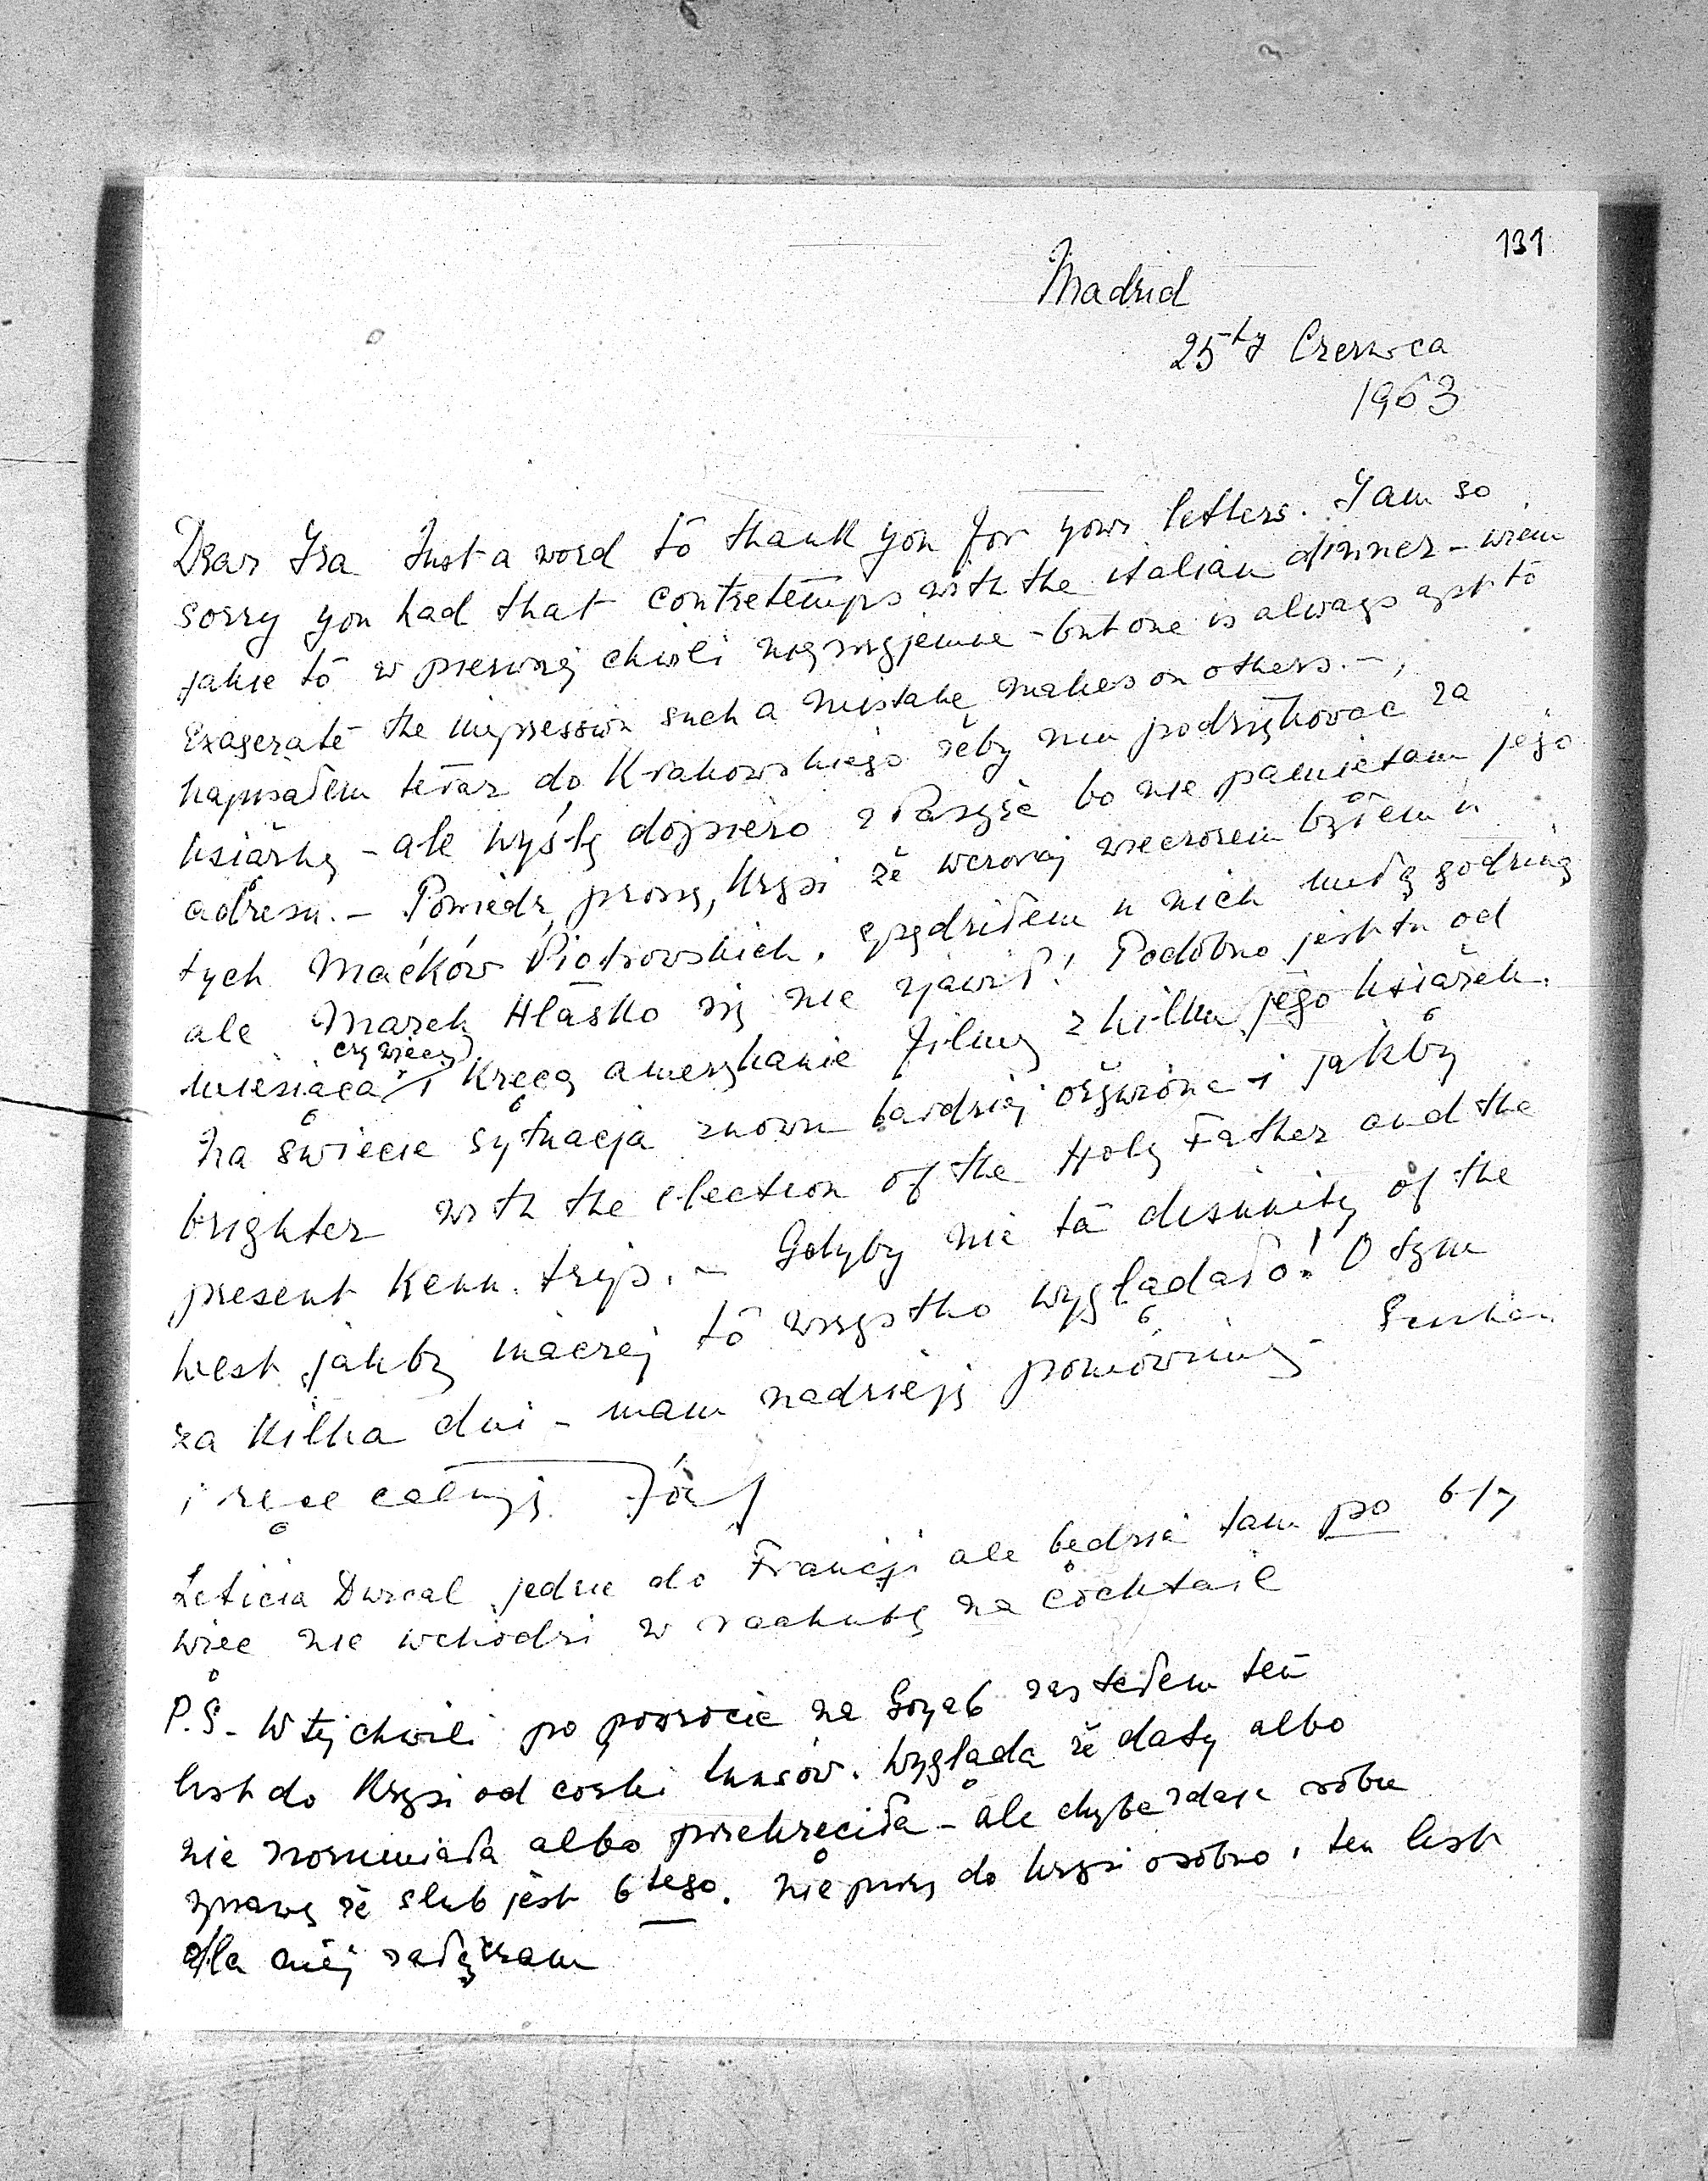 131
Madrid
25-ty Czerwca
1963
Dear Isa Just a word to thank you for your letters. I am so
sorry you had that contretemps with the italian dinner - wiem
jakie to w pierwszej chwili nieprzyjemne - but one is always apt to
exagerate the impression such a mistake makes on others. -
Napisałem teraz do Krakowskiego żeby mu podziękować za
książkę - ale wyślę dopiero z Paryża bo nie pamiętam jego
adresu. - Powiedz, proszę, Krysi że wczoraj wieczorem byłem u
tych Maćków Piotrowskich. Spędziłem u nich miłą godzinę
ale Marek Hłasko się nie zjawił! Podobno jest tu od
miesiąca (czy więcej) i kręcą amerykanie filmy z kilku jego książek.
Na świecie sytuacja znowu bardziej ożywiona i jakby
brighter with the election of the Holy Father and the
present Kenn. trip. - Gdyby nie ta disunity of the
West jakby inaczej to wszystko wyglądało! O tym
za kilka dni - mam nadzieję pomówimy
i ręce całuję Józ
Leticia Durcal jedzie do Francji ale będzie tam po 6-ty
więc nie wchodzi w rachubę na cocktail
P.S. W tej chwili po powrocie na zastałem ten
list do Krysi od córki. Wygląda że daty albo
nie zrozumiała albo przekręciła - ale chyba zdaje sobie
sprawę że ślub jest 6tego. Nie piszę do Krysi osobno, ten list
dla niej załączam